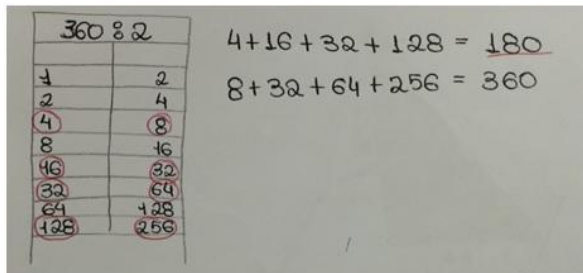 360 : 2
1 2
2 4
4 8
8 16
16 32
32 64
64 128
128 256
4+16+32+128 = 180
8+32+64+256 = 360